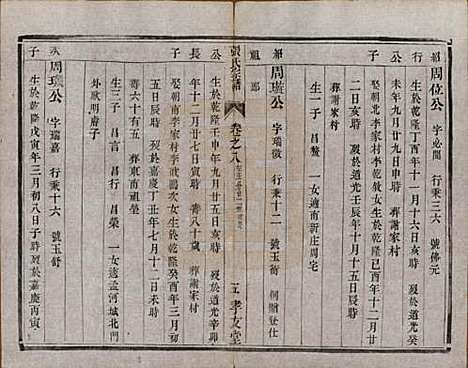 紹 周位公 字必聞 行秉三六 號佛元
行 生於乾隆丁酉年十一月十六日亥時 歿於道光癸
公 未年九月廿九日申時 葬謝家村
子 娶朝北李家村李氏女生於乾隆己酉年十二月廿
二日亥時 歿於道光壬辰年十月十五日辰時
葬謝家村
生一子 昌鰲 一女適南新庄周宅
紹 周璇公 字瑞徵 行秉十二 號玉衡 例贈登仕
祖 郎
公 生於乾隆壬申年九月廿五日辰時 歿於道光辛卯
長 年十二月廿七日寅時 壽八十歲 葬謝家村
子 娶朝南李家村李 次女生於乾隆癸酉年三月初
五日辰時 歿於嘉慶丁丑年七月十二日未時
壽六十有五 葬東南祖塋
生三子 昌言 昌行 昌榮 一女適孟河城北門
外耿明甫子
次 周璣公 字瑞嘉 行秉十六 號玉衡
子 生於乾隆戊寅年三月初八日子時 歿於嘉慶丙寅
張氏宗譜
卷之八
五 孝友堂